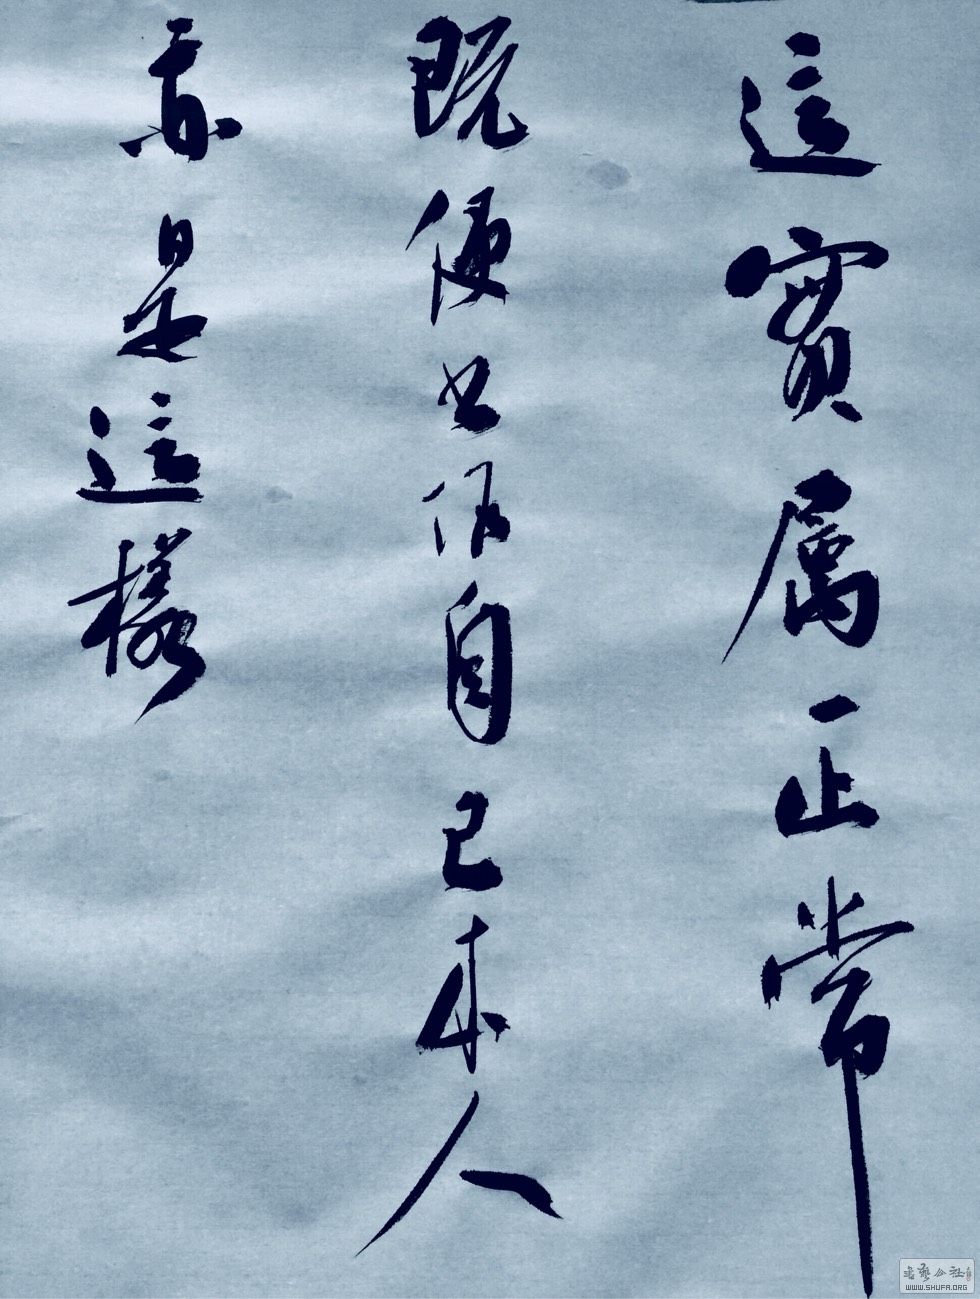 這實属正常
既便公佰自己本人
亦是這樣
書藝公社
WWW.SHUFA.ORG